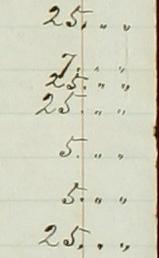 25. „ „
7. „ „
25. „ „
25. „ „
5. „ „
5. „ „
25. „ „